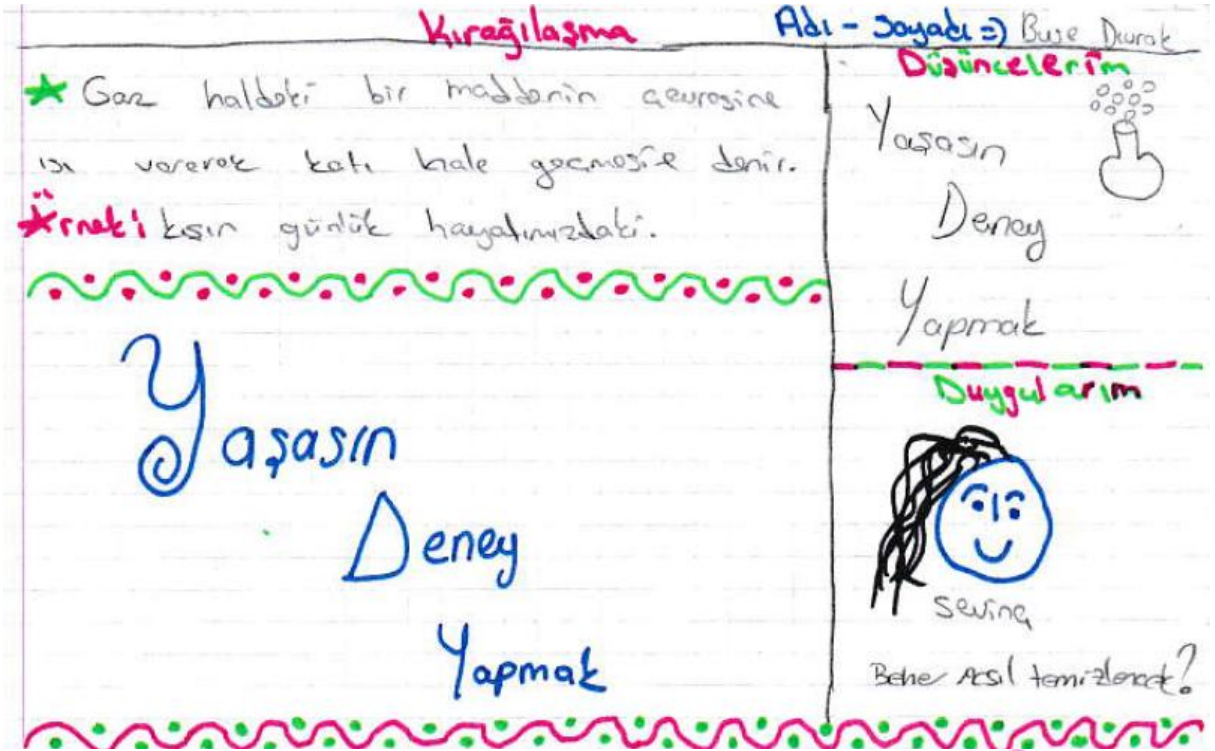 Kırağılaşma
Adı - Soyadı => Buse Durak
★ Gaz haldeki bir maddenin çevresine
ısı vererek katı hale geçmesine denir.
Örnek: kışın günlük hayatımızdaki.
Yaşasın
Deney
Yapmak
Düşüncelerim
Yaşasın
Deney
Yapmak
Duygularım
Sevinç
temizlenecek?